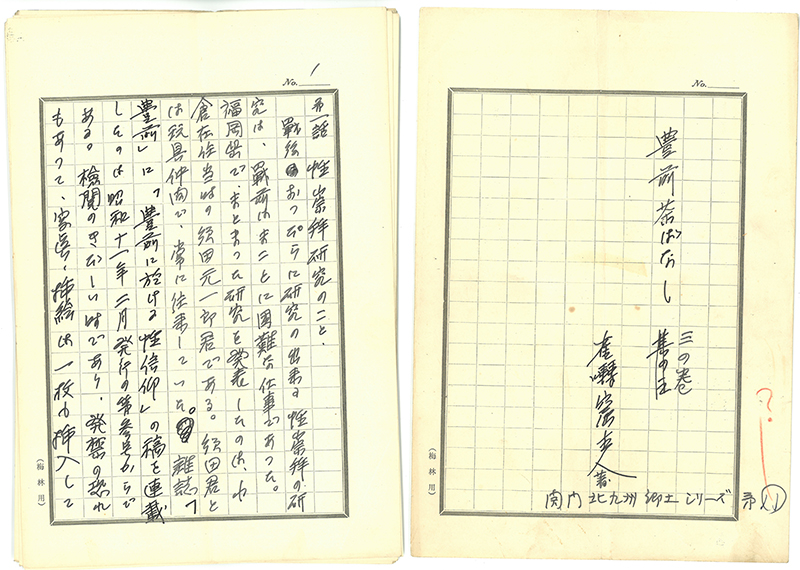 No.
豊前茶ばなし
三の巻
其の五
著
関門北九州郷土シリーズ 第(11)
?
(梅林用)
No. 1
第一話 性崇拝研究のこと.
戦後おつぴらに研究の出来る性崇拝の研
究は、戦前はまことに困難な仕事であつた。
福岡県で、まとまつた研究を発表したのは、小
倉在住当時の須田元一郎君である。須田君と
は玩具仲間で、常に往来していた。雑誌「
豊前」に、「豊前に於ける性信仰」の稿を連載
したのは昭和十一年二月発行の第参号からで
ある。検閲のきびしい時であり、発禁の恐れ
もあつて、写真・挿絵は一枚も挿入して
(梅林用)